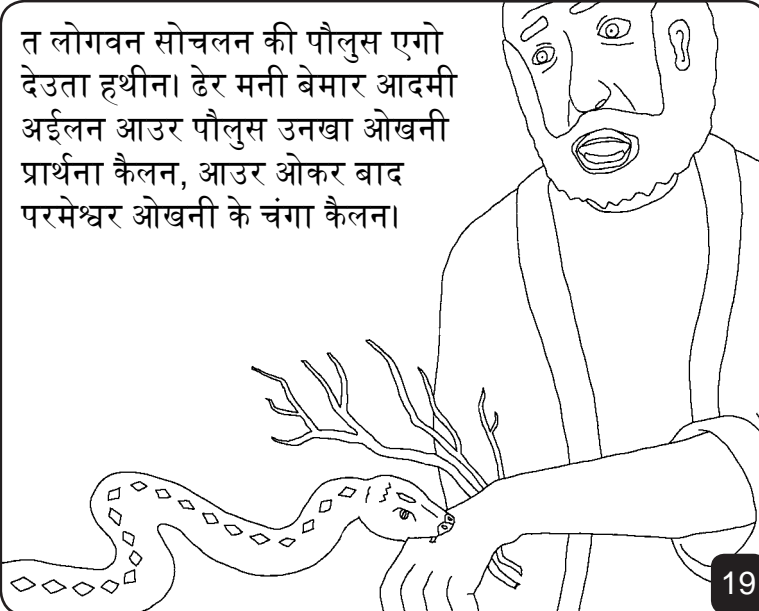 त लोगवन सोचलन की पौलुस एगो
देउता हथीन। ढेर मनी बेमार आदमी
अईलन आउर पौलुस उनखा ओखनी
प्रार्थना कैलन, आउर ओकर बाद
परमेश्वर ओखनी के चंगा कैलन।
19